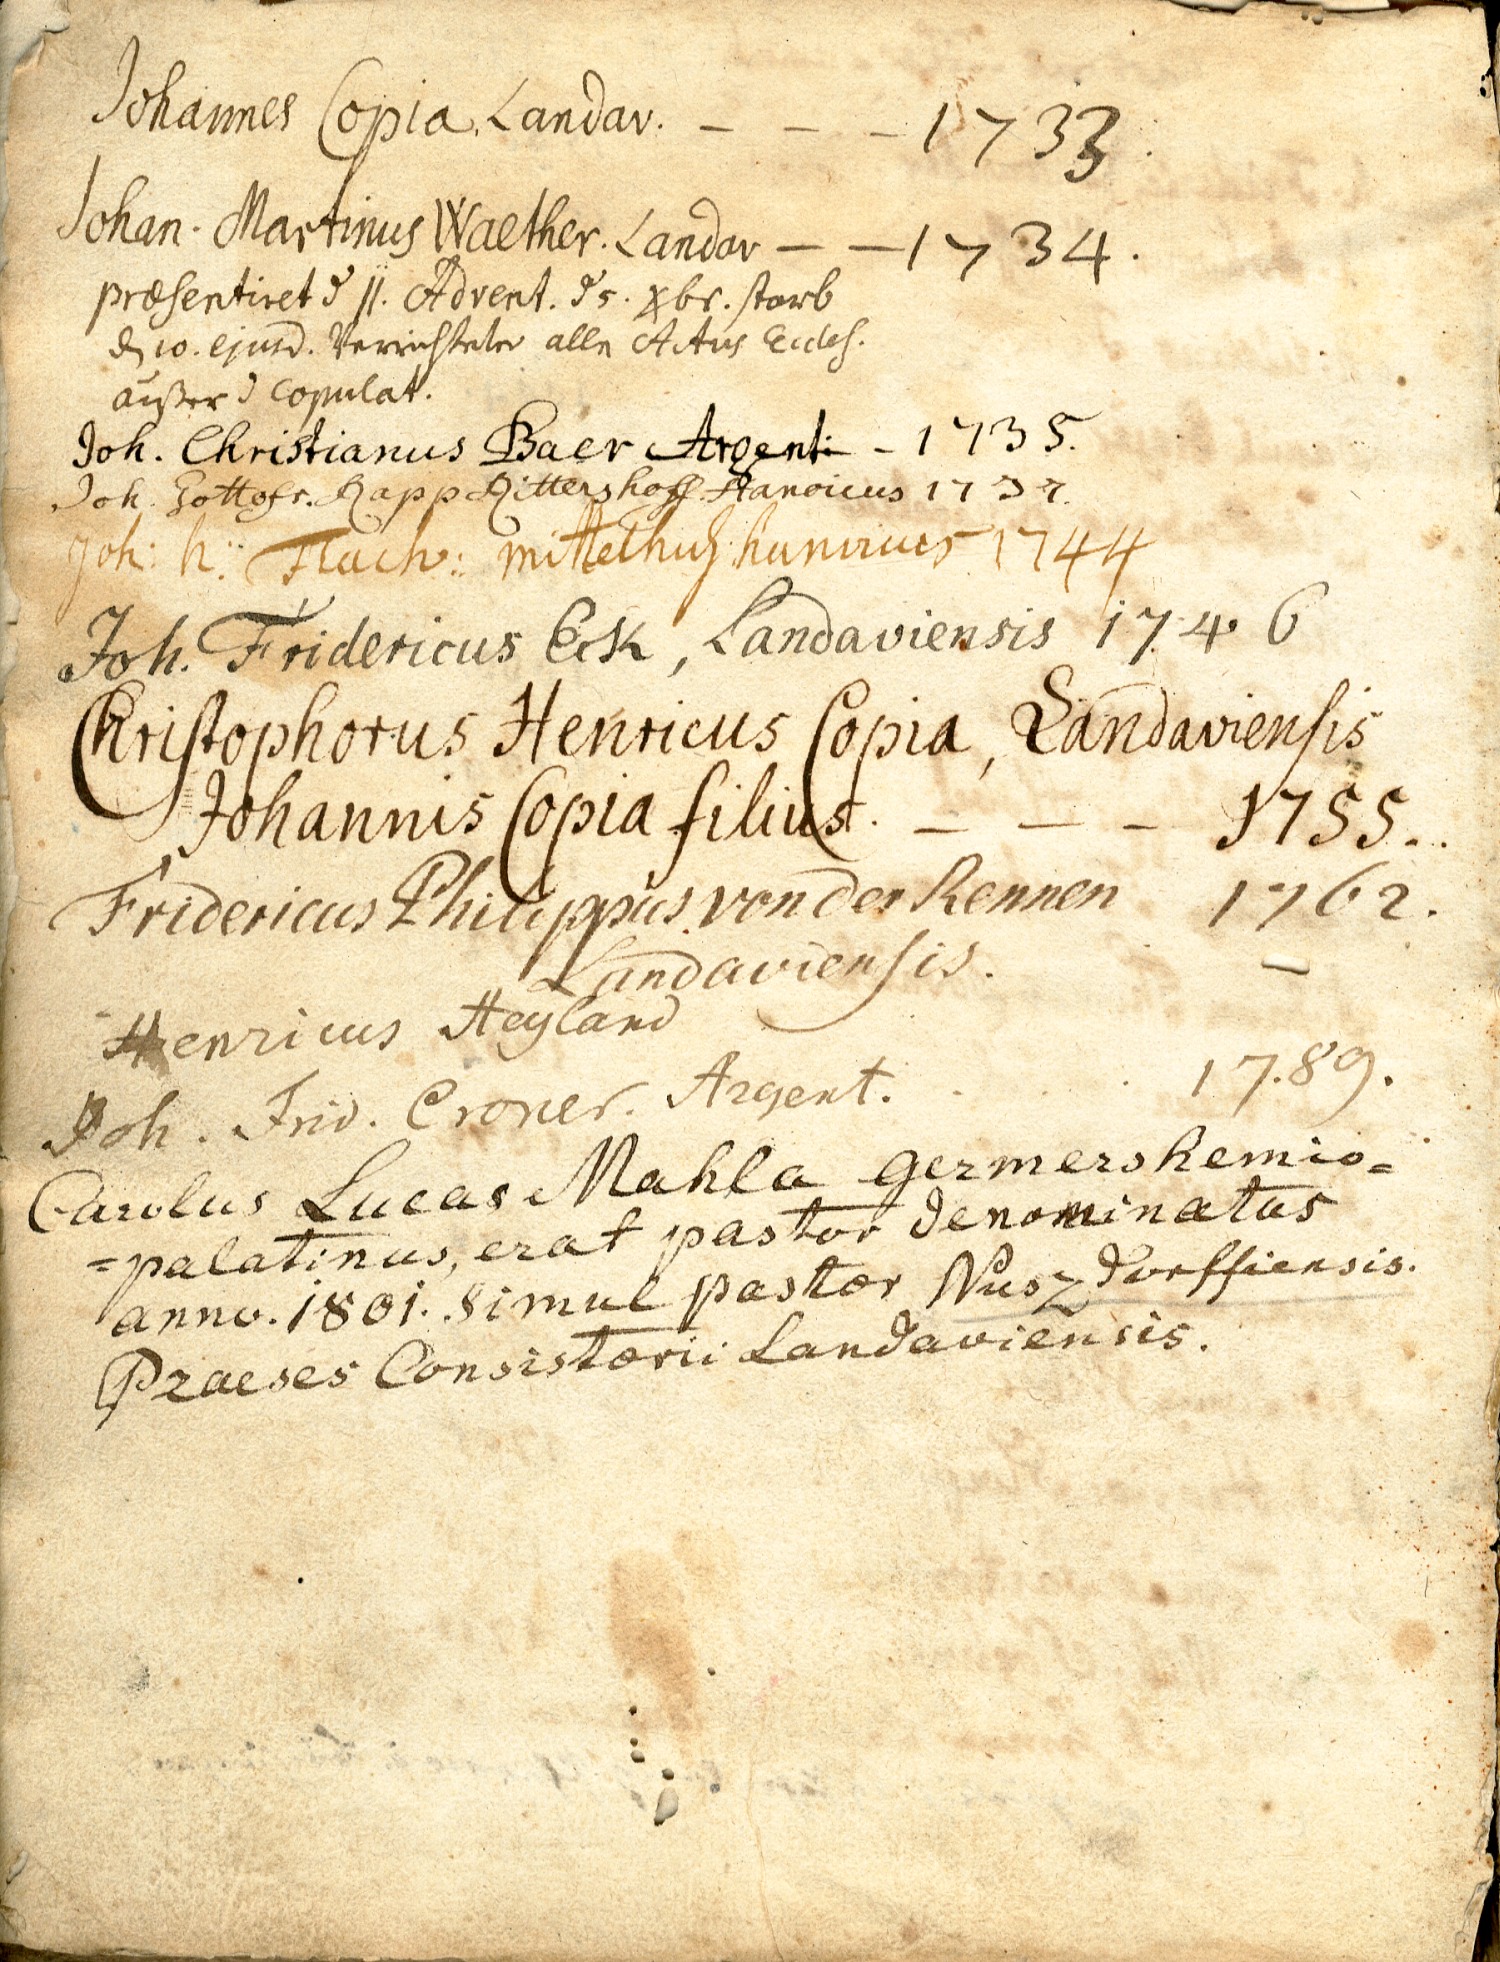 Johannes Copia. Landav. – – – 1733.
Johan. Martinus Waether. Landav – – 1734.
præsentiret d. II. Advent. d. 5. Xbr. starb
d. 10. ejusd. Verrichtete alle Actus Eccles.
außer d Copulat.
Joh. Christianus Baer Argent: – 1735.
Joh. Gottofr. Rapp Rittershoff. Hanoicus 1737.
Joh: h: Flach: 1744
Joh. Fridericus Eck, Landaviensis 1746
Christophorus Henricus Copia, Landaviensis
Johannis Copia filius. – – – 1755..
Fridericus Philippus von der Kennen 1762.
Landaviensis. –
Henricus Heyland
Joh. Frid. Croner. Argent. . . 17.89.
Carolus Lucas Mahla germershemio=
=palatinus, erat pastor denominatus
anno. 1801. Simul pastor Nuszdorffiensis.
Praeses Consistorii Landaviensis.